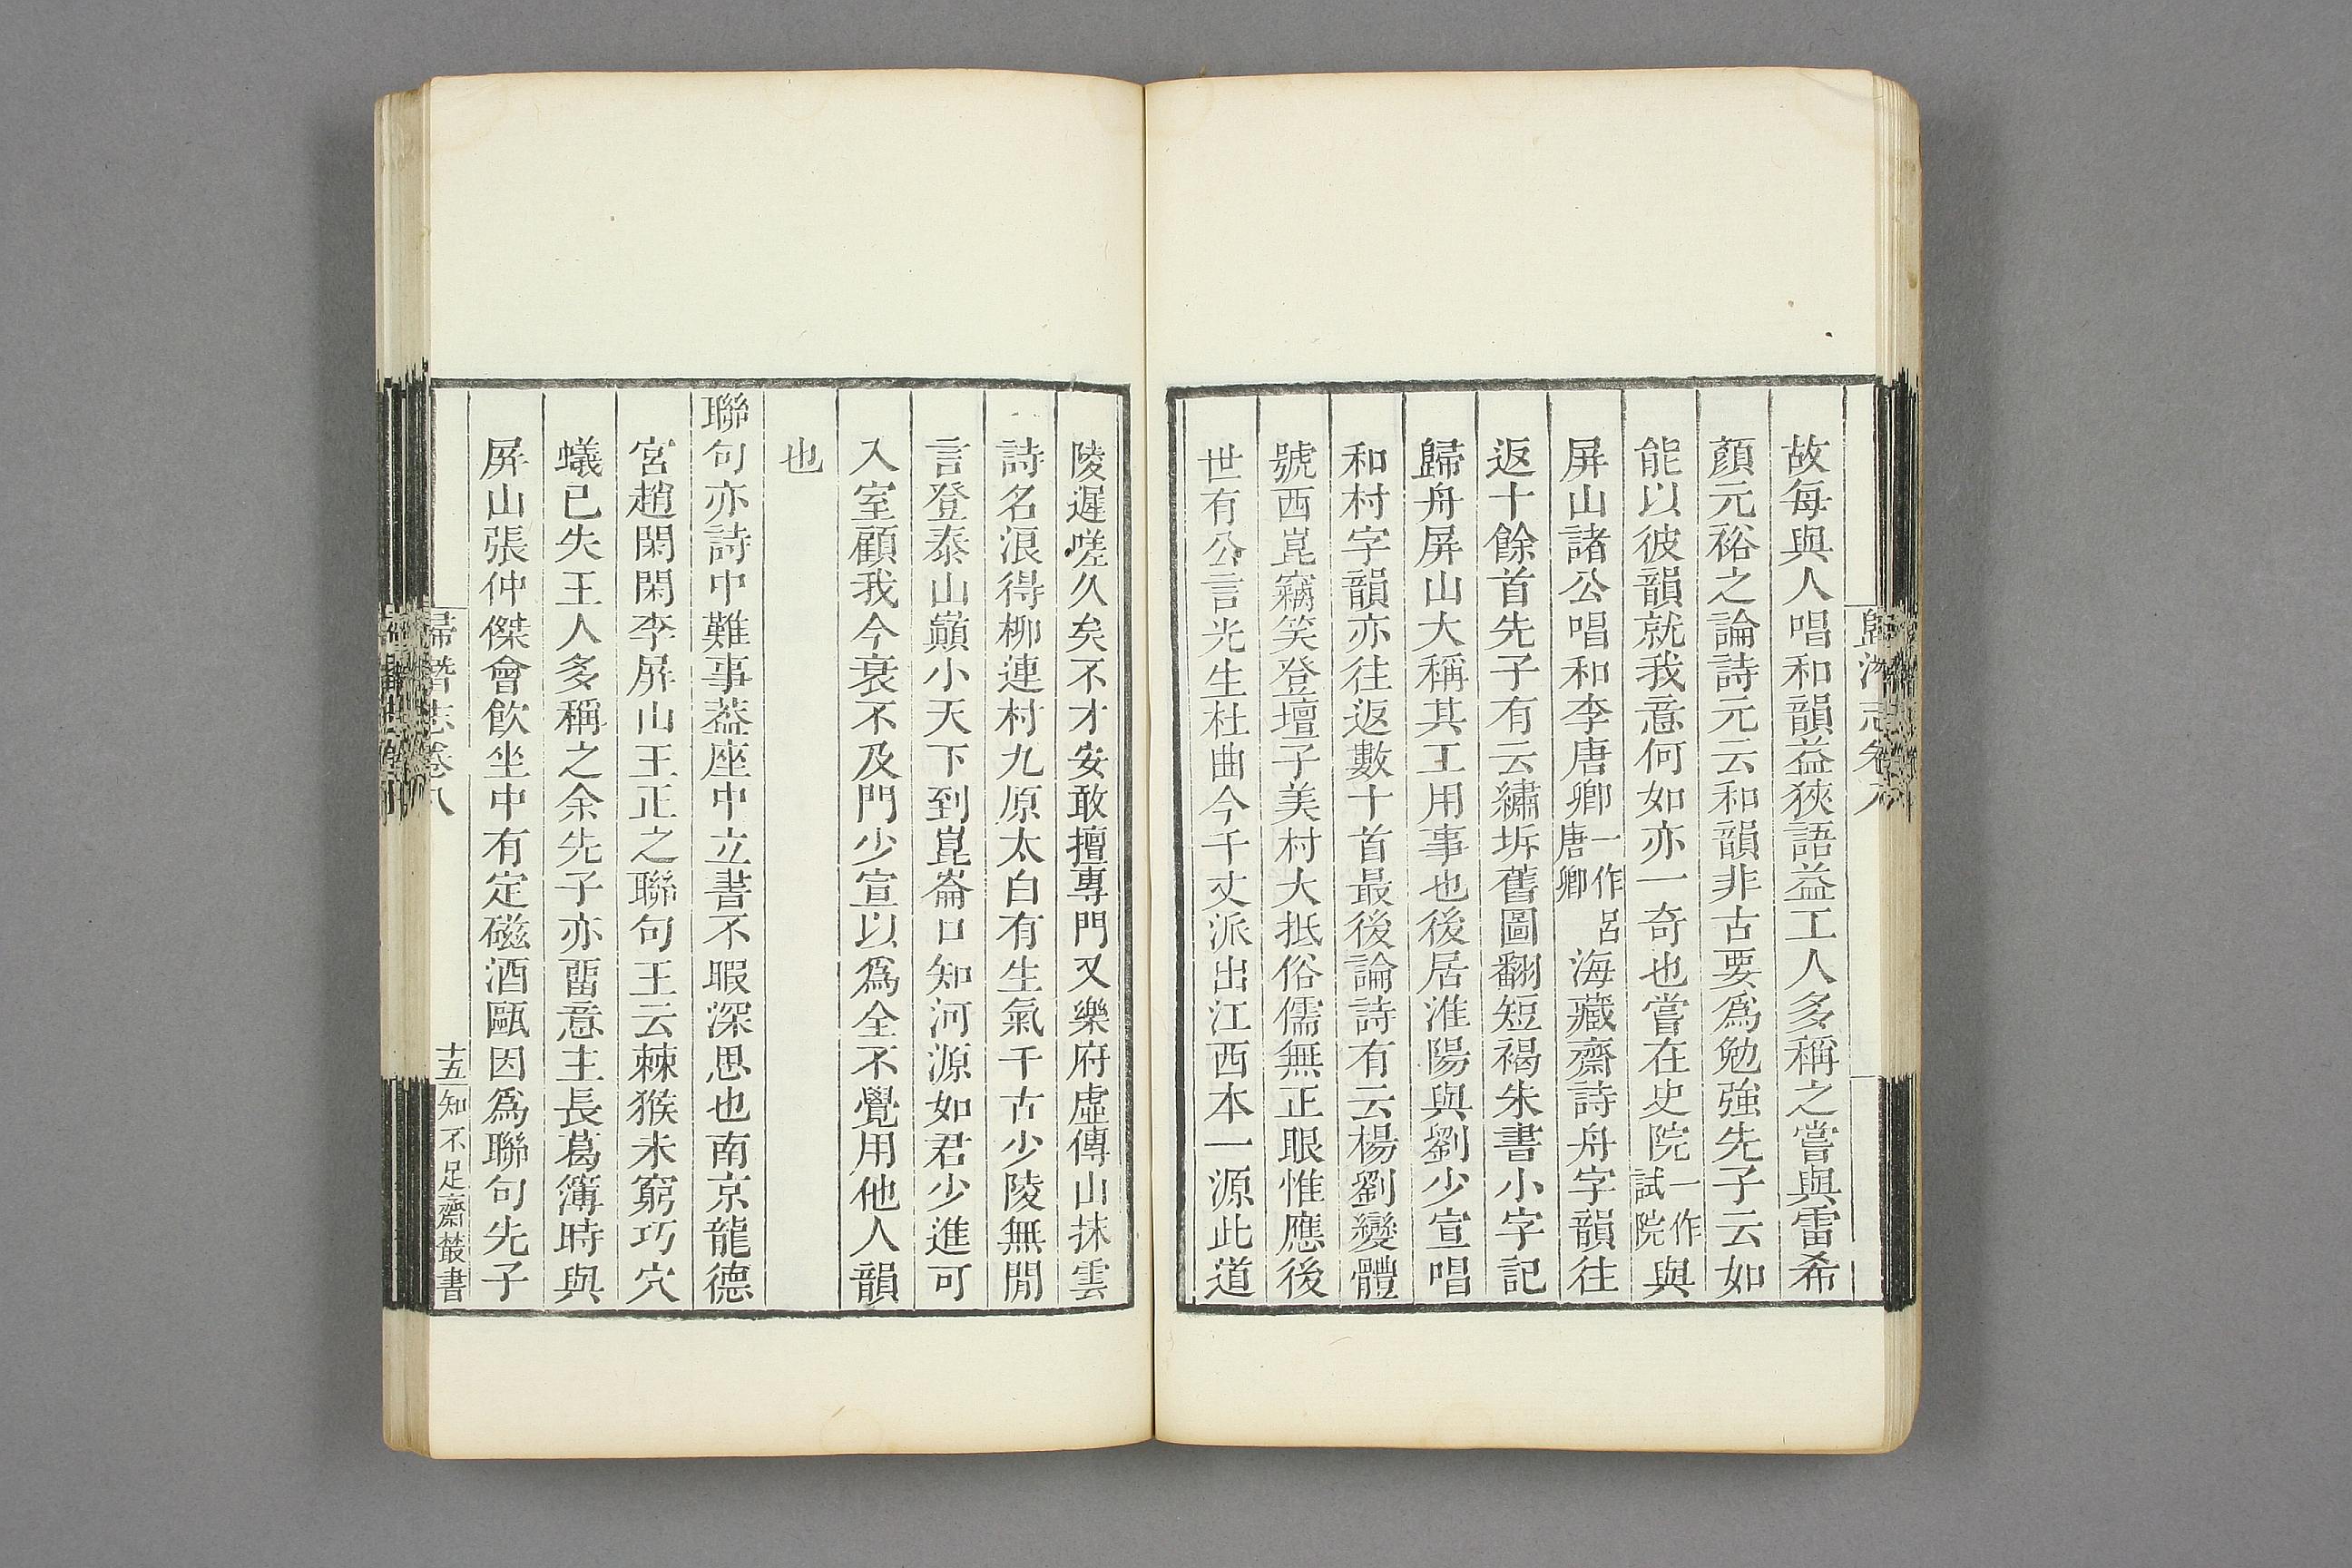 故每與人唱和韻益狹語益工人多稱之嘗與雷希
顏元裕之論詩元云和韻非古要爲勉強先子云如
能以彼韻就我意何如亦一奇也嘗在史院一作試院與
屏山諸公唱和李唐卿一作呂唐卿海藏齋詩舟字韻往
返十餘首先子有云繡坼舊圖翻短褐朱書小字記
歸舟屏山大稱其工用事也後居淮陽與劉少宣唱
和村字韻亦往返數十首最後論詩有云楊劉變體
號西崑竊笑登壇子美村大抵俗儒無正眼惟應後
世有公言光生杜曲今千丈派出江西本一源此道
陵遲嗟久矣不才安敢擅專門又樂府虛傳山抹雲
詩名浪得柳連村九原太白有生氣千古少陵無閒
言登泰山巓小天下到崑崙口知河源如君少進可
入室顧我今衰不及門少宣以爲全不覺用他人韻
也
聯句亦詩中難事葢座中立書不暇深思也南京龍德
宮趙閑閑李屏山王正之聯句王云棘猴未窮巧穴
蟻已失王人多稱之余先子亦畱意主長葛簿時與
屏山張仲傑會飮坐中有定磁酒甌因爲聯句先子
歸潛志卷八
十五
知不足齋叢書